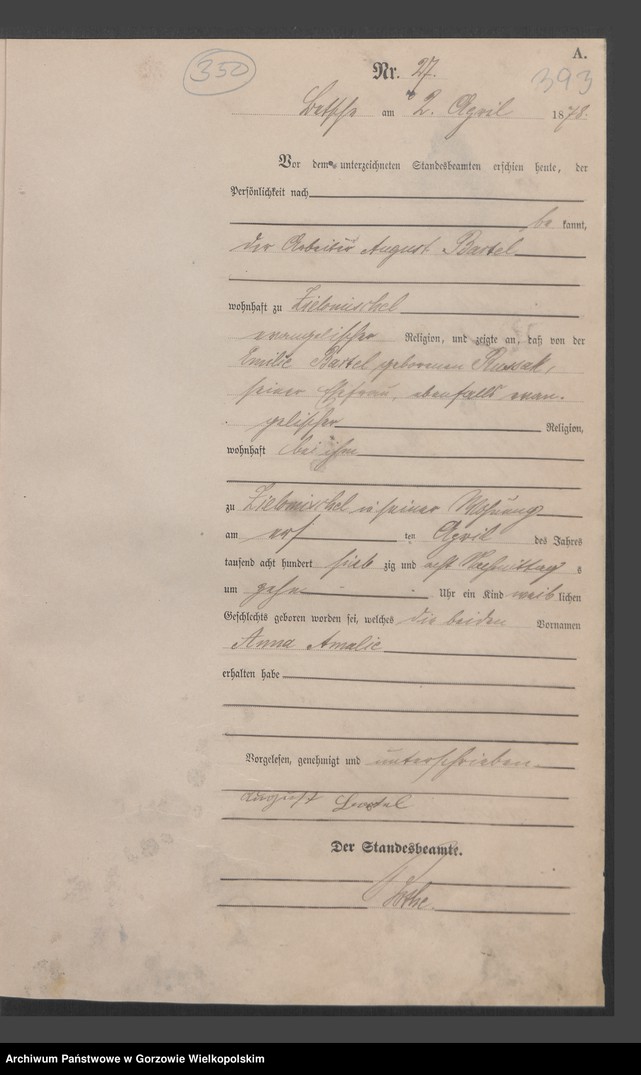 A.
350
Nr. 27.
393
Betsche am 2. April 1878.
Vor dem unterzeichneten Standesbeamten erschien heute, der
Persönlichkeit nach
be kannt,
der Arbeiter August Bartel
wohnhaft zu Zielomischel
evangelischer Religion, und zeigte an, daß von der
Emilie Bartel geborenen Russak,
seiner Ehefrau, ebenfalls evan-
gelischer Religion,
wohnhaft bei ihm
zu Zielomischel in seiner Wohnung
am ten April des Jahres
tausend acht hundert sieb zig und acht Nachmittag s
um zehn Uhr ein Kind weib lichen
Geschlechts geboren worden sei, welches die beiden Vornamen
Anna Amalie
erhalten habe
Vorgelesen, genehmigt und unterschrieben
August Bartel
Der Standesbeamte.
Archiwum Państwowe w Gorzowie Wielkopolskim